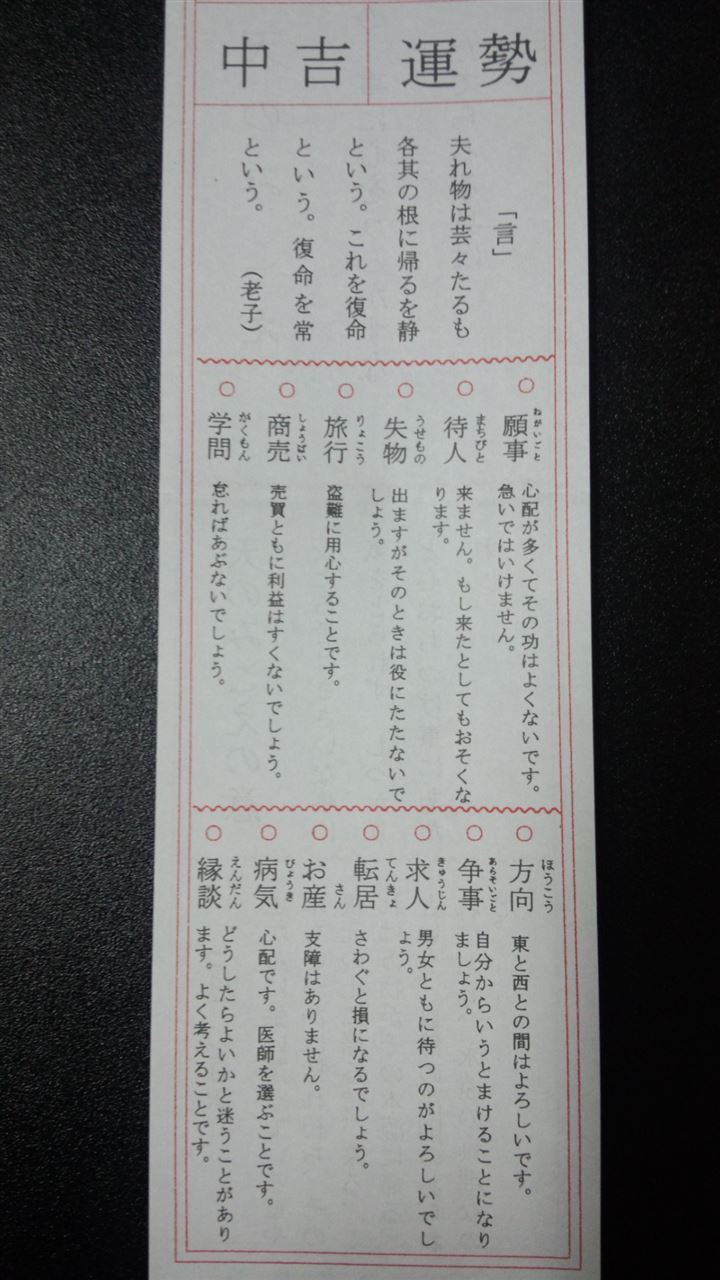 運勢 中吉
「言」
夫れ物は芸々たるも
各其の根に帰るを静
という。これを復命
という。復命を常
という。 (老子)
○ 願事 ねがいごと
心配が多くてその功はよくないです。
急いではいけません。
○ 待人 まちびと
来ません。もし来たとしてもおそくな
ります。
○ 失物 うせもの
出ますがそのときは役にたたないで
しょう。
○ 旅行 りょこう
盗難に用心することです。
○ 商売 しょうばい
売買ともに利益はすくないでしょう。
○ 学問 がくもん
怠ればあぶないでしょう。
○ 方向 ほうこう
東と西との間はよろしいです。
○ 争事 あらそいごと
自分からいうとまけることになり
ましょう。
○ 求人 きゅうじん
男女ともに待つのがよろしいでし
ょう。
○ 転居 てんきょ
さわぐと損になるでしょう。
○ お産 さん
支障はありません。
○ 病気 びょうき
心配です。医師を選ぶことです。
○ 縁談 えんだん
どうしたらよいかと迷うことがあり
ます。よく考えることです。